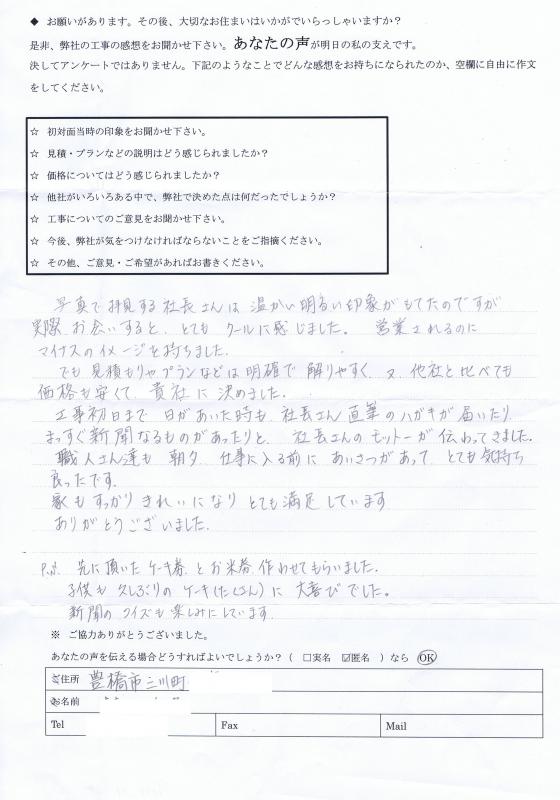 ◆ お願いがあります。その後、大切なお住まいはいかがでいらっしゃいますか？
是非、弊社の工事の感想をお聞かせ下さい。あなたの声が明日の私の支えです。
決してアンケートではありません。下記のようなことでどんな感想をお持ちになられたのか、空欄に自由に作文
をしてください。
☆ 初対面当時の印象をお聞かせ下さい。
☆ 見積・プランなどの説明はどう感じられましたか？
☆ 価格についてはどう感じられましたか？
☆ 他社がいろいろある中で、弊社で決めた点は何だったでしょうか？
☆ 工事についてのご意見をお聞かせ下さい。
☆ 今後、弊社が気をつけなければならないことをご指摘ください。
☆ その他、ご意見・ご希望があればお書きください。
写真で拝見する社長さんは 温かい明るい印象がもてたのですが
実際、お会いすると、とても クールに感じました。 営業されるのに
マイナスのイメージを持ちました。
でも 見積もりやプランなどは明確で 解りやすく、又、他社と比べても
価格も安くて、貴社に決めました。
工事初日まで 日があいた時も、社長さん直筆のハガキが届いたり
まっすぐ新聞なるものがあったりと、 社長さんのモットーが伝わってきました。
職人さん達も 朝夕、仕事に入る前に あいさつがあって、とても気持ち
良ったです。
家もすっかりきれいになり とても満足しています
ありがとうございました。
P.S. 先に頂いた ケーキ券 とお米券、作わせてもらいました。
子供も 久しぶりの ケーキ(たくさん) に 大喜びでした。
新聞の クイズも楽しみにしています。
※ ご協力ありがとうございました。
あなたの声を伝える場合どうすればよいでしょうか？（ □実名 ☑匿名 ）なら OK
ご住所 豊橋市三川町
お名前
Tel Fax Mail